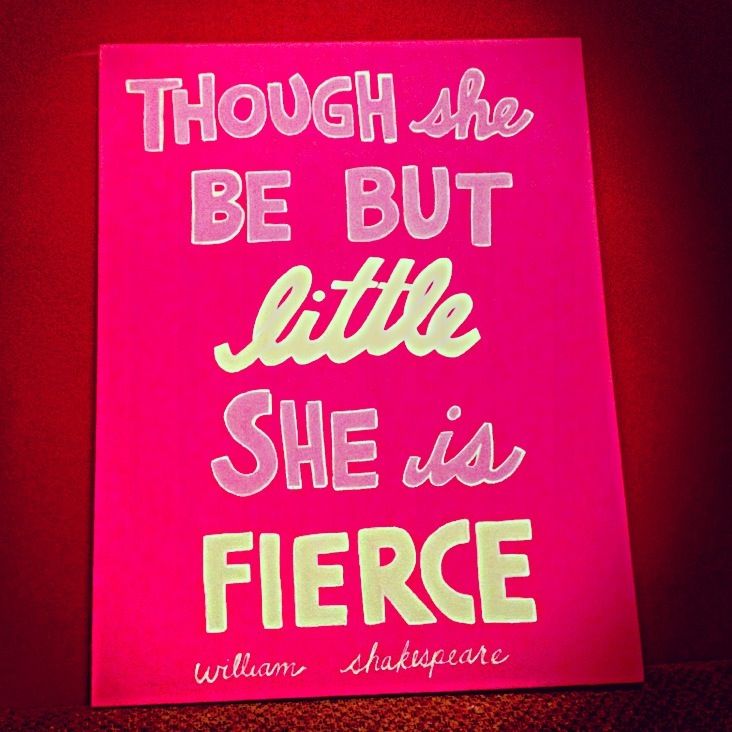 THOUGH she
BE BUT
little
SHE is
FIERCE
william shakespeare